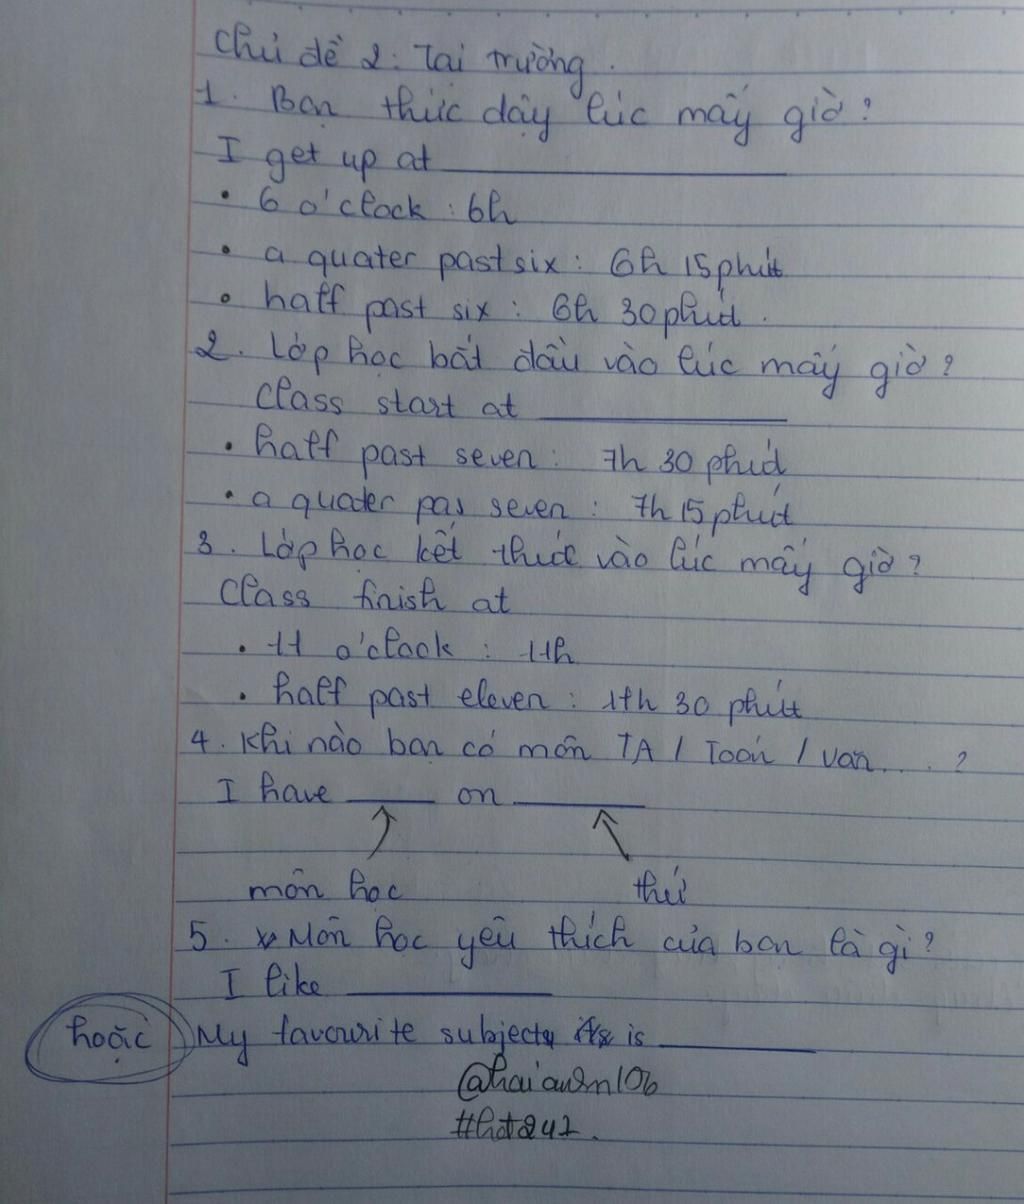 Chủ đề 2: Tại trường.
1. Bạn thức dậy lúc mấy giờ?
I get up at
• 6 o'clock : 6h
• a quater past six : 6h 15 phút
• half past six : 6h 30 phút.
2. Lớp học bắt đầu vào lúc mấy giờ?
Class start at
• half past seven : 7h 30 phút
• a quater pas seven : 7h 15 phút
3. Lớp học kết thúc vào lúc mấy giờ?
Class finish at
• 11 o'clock : 11h
• half past eleven : 11h 30 phút
4. Khi nào bạn có môn TA / Toán / văn....?
I have ____ on ____
môn học thứ
5. Môn học yêu thích của bạn là gì?
I like
hoặc My favourite subject is
#hd247.